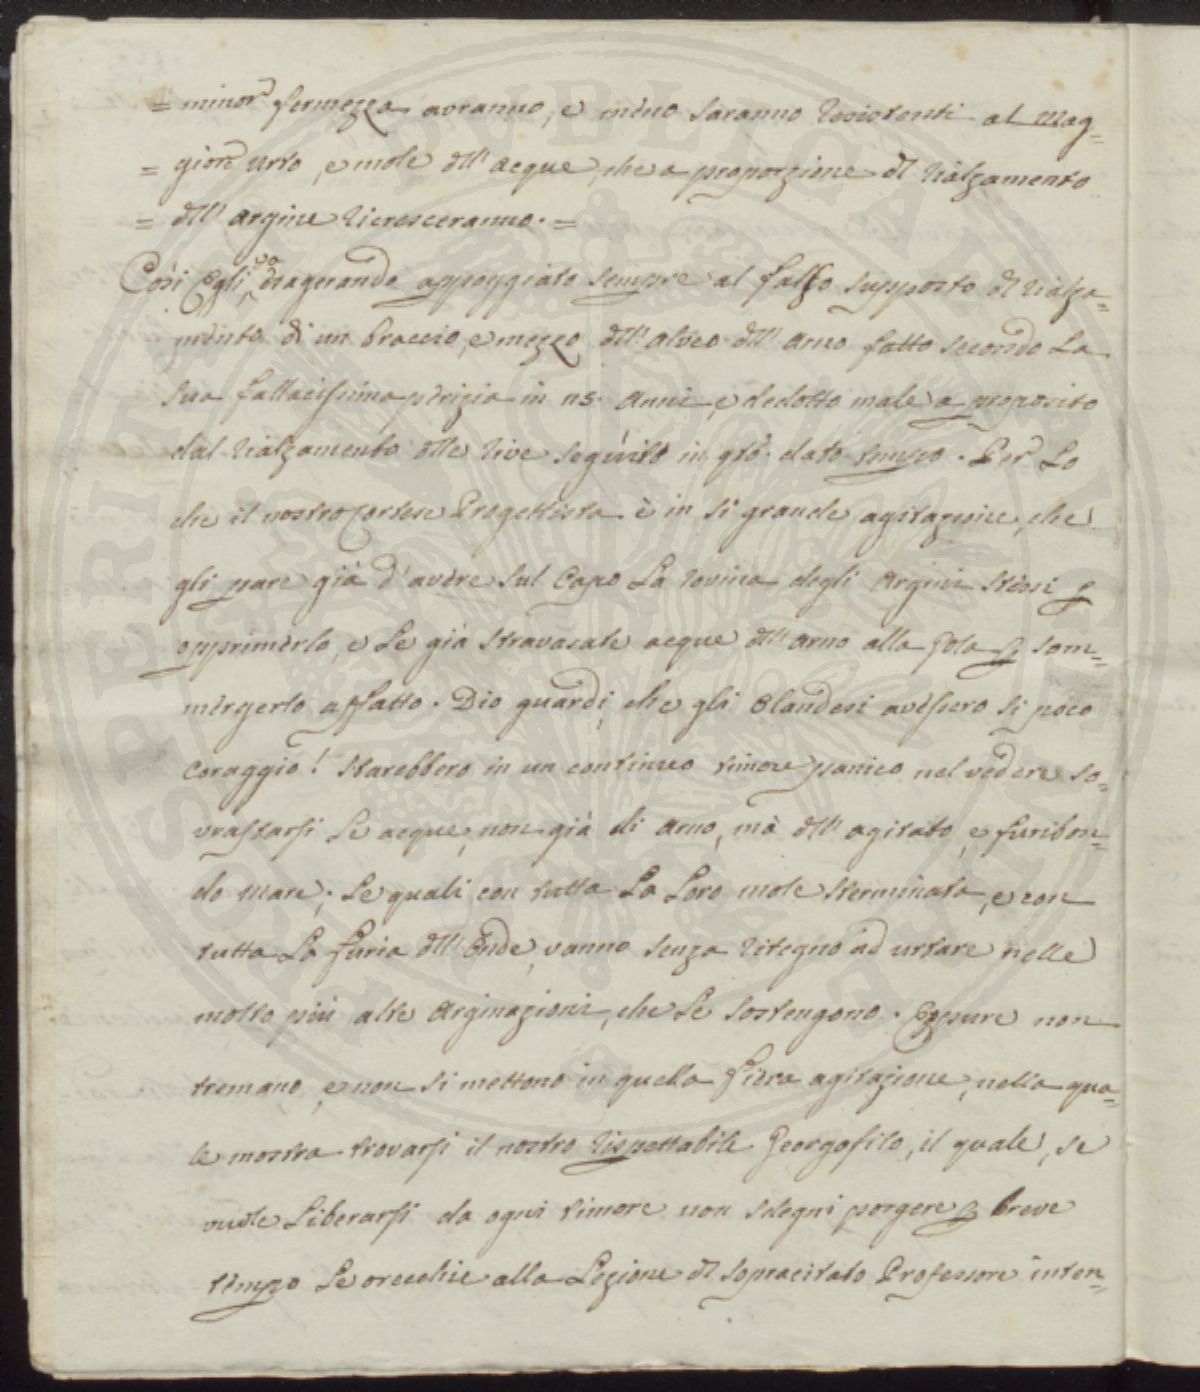 = minor fermezza avranno, e meno saranno resistenti al mag=
= gior urto, e mole dell' acque, che a proporzione del rialzamento
= dell' argine ricresceranno. =
Così Egli va esagerando appoggiato sempre al falso supposto del rialza=
mento di un braccio, e mezzo dell' alveo dell' Arno fatto secondo La
sua fallacissima perizia in 115. Anni, e dedotto male a proposito
dal rialzamento delle rive seguito in qto. dato tempo. Per Lo
che il nostro Cortese Progettista è in sì grande agitazione, che
gli pare già d' avere sul Capo La rovina degli Argini stessi p
opprimerlo, e Le già stravasate acque dell' Arno alla gola p som=
mergerlo affatto. Dio guardi, che gli Olandesi avessero sì poco
coraggio! Starebbero in un continuo timore panico nel vedere so=
vrastarsi Le acque, non già di Arno, mà dell' agitato, e furibon=
do Mare; Le quali con tutta La Loro mole sterminata, e con
tutta La furia dell' Onde, vanno senza ritegno ad urtare nelle
molto più alte Arginazioni, che Le sostengono. Eppure non
tremano, e non si mettono in quella fiera agitazione, nella qua=
le mostra trovarsi il nostro rispettabile Georgofilo, il quale, se
vuole Liberarsi da ogni timore non sdegni porgere p breve
tempo Le orecchie alla Lezione del sopracitato Professore inten=